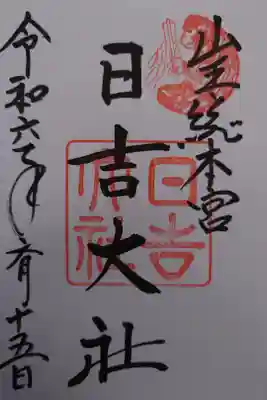 山王総本宮
日吉大社
日吉大社
令和六年一月十五日